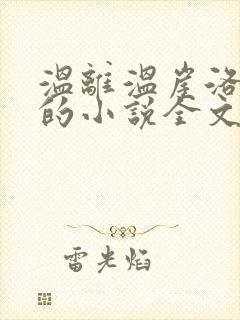 溫離溫崖洛
的小說全文
雷光焰